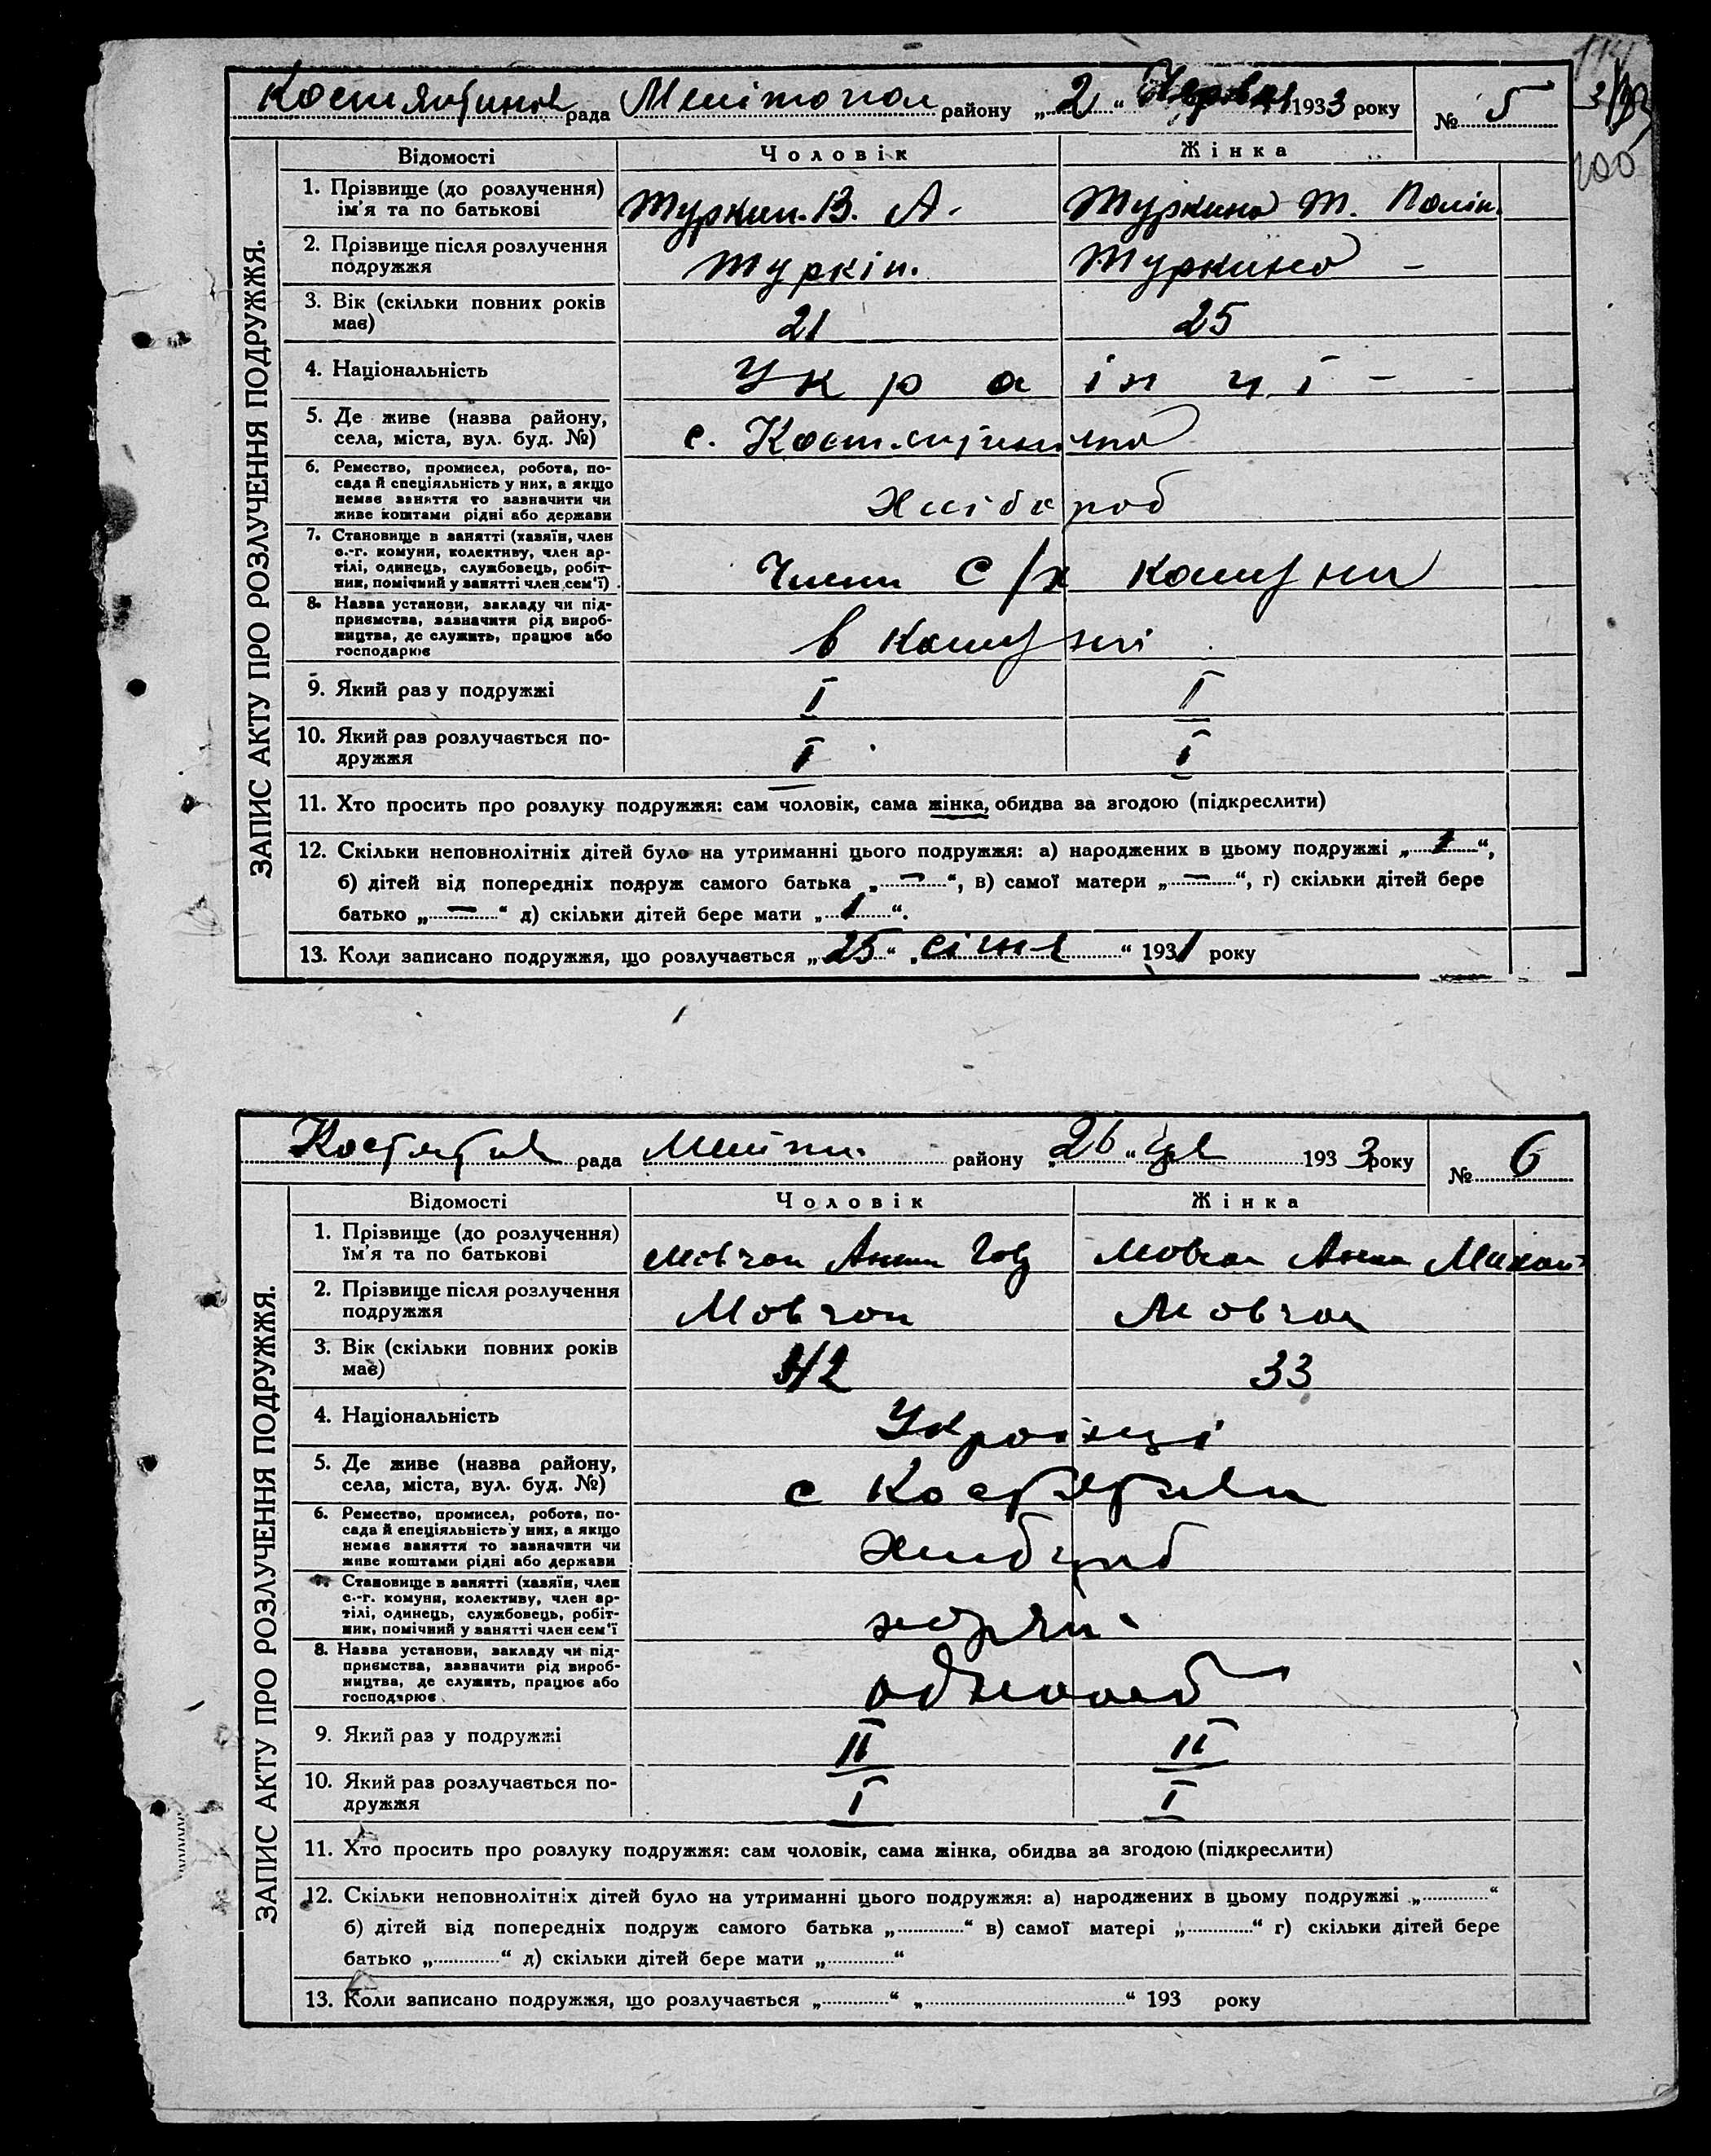 рада Мелітопол району „2“ Червня 1933 року № 5
ЗАПИС АКТУ ПРО РОЗЛУЧЕННЯ ПОДРУЖЖЯ.
Відомості Чоловік Жінка
1. Прізвище (до розлучення)
ім'я та по батькові Туркин. В. А. Туркина Т.
2. Прізвище після розлучення
подружжя Туркін. Туркина –
3. Вік (скільки повних років
має) 21 25
4. Національність Українці –
5. Де живе (назва району,
села, міста, вул. буд. №) с.
6. Ремество, промисел, робота, по-
сада й спеціяльність у них, а якщо
немає заняття то зазначити чи
живе коштами рідні або держави Хлібороб
7. Становище в занятті (хазяїн, член
с.-г. комуни, колективу, член ар-
тілі, одинець, службовець, робіт-
ник, помічний у занятті член сем'ї) Члени С/х комуни
8. Назва установи, закладу чи під-
приємства, зазначити рід вироб-
ництва, де служить, працює або
господарює в комуні
9. Який раз у подружжі I I
10. Який раз розлучається по-
дружжя I I
11. Хто просить про розлуку подружжя: сам чоловік, сама жінка, обидва за згодою (підкреслити)
12. Скільки неповнолітніх дітей було на утриманні цього подружжя: а) народжених в цьому подружжі „1“,
б) дітей від попередніх подруж самого батька „–“, в) самої матери „–“, г) скільки дітей бере
батько „–“ д) скільки дітей бере мати „1“.
13. Коли записано подружжя, що розлучається „25“ „січня“ 1931 року
рада району „26“ 1933 року № 6
ЗАПИС АКТУ ПРО РОЗЛУЧЕННЯ ПОДРУЖЖЯ.
Відомості Чоловік Жінка
1. Прізвище (до розлучення)
ім'я та по батькові Мовчан Мовчан Анна
2. Прізвище після розлучення
подружжя Мовчан Мовчан
3. Вік (скільки повних років
має) 42 33
4. Національність Українці
5. Де живе (назва району,
села, міста, вул. буд. №) с
6. Ремество, промисел, робота, по-
сада й спеціяльність у них, а якщо
немає заняття то зазначити чи
живе коштами рідні або держави
7. Становище в занятті (хазяїн, член
с.-г. комуни, колективу, член ар-
тілі, одинець, службовець, робіт-
ник, помічний у занятті член сем'ї
8. Назва установи, закладу чи під-
приємства, зазначити рід вироб-
ництва, де служить, працює або
господарює
9. Який раз у подружжі II II
10. Який раз розлучається по-
дружжя I I
11. Хто просить про розлуку подружжя: сам чоловік, сама жінка, обидва за згодою (підкреслити)
12. Скільки неповнолітніх дітей було на утриманні цього подружжя: а) народжених в цьому подружжі „“
б) дітей від попередніх подруж самого батька „“ в) самої матері „“ г) скільки дітей бере
батько „“ д) скільки дітей бере мати „“
13. Коли записано подружжя, що розлучається „“ „“ 193 року